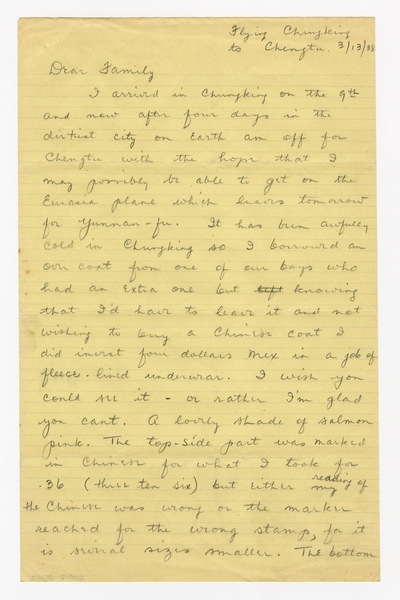 Flying Chungking
to Chengtu. 3/13/38
Dear Family
I arrived in Chungking on the 9th
and now after four days in the
dirtiest city on Earth am off for
Chengtu with the hope that I
may possibly be able to get on the
Eurasia plane which leaves tomorrow
for Yunnan-fu. It has been awfully
cold in Chungking so I borrowed an
over coat from one of our boys who
had an extra one but left knowing
that I'd have to leave it and not
wishing to buy a Chinese coat I
did invest four dollars Mex in a job of
fleece-lined underwear. I wish you
could see it - or rather I'm glad
you cant. A lovely shade of salmon
pink. The top-side part was marked
in Chinese for what I took for
.36 (three ten six) but either my reading of
the Chinese was wrong or the marker
reached for the wrong stamp, for it
is several sizes smaller. The bottom